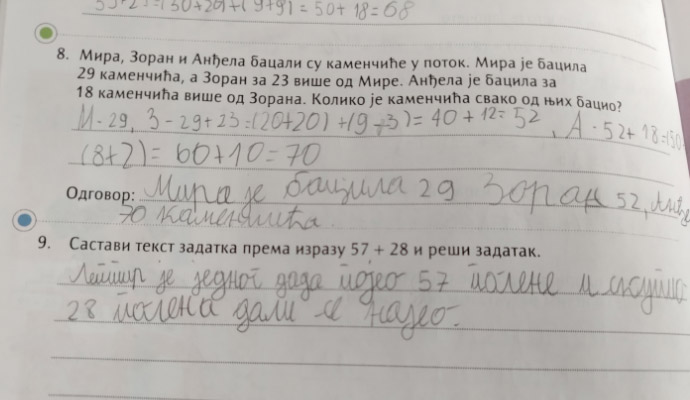 55+25=(50+20)+(9+9)=50+18=68
8. Мира, Зоран и Анђела бацали су каменчиће у поток. Мира је бацила
29 каменчића, а Зоран за 23 више од Мире. Анђела је бацила за
18 каменчића више од Зорана. Колико је каменчића свако од њих бацио?
М-29, З-29+23=(20+20)+(9+3)=40+12=52, А-52+18=(50
(8+2)=60+10=70
Одговор: Мира је бацила 29 Зоран 52, Анђе
70 каменчића.
9. Састави текст задатка према изразу 57 + 28 и реши задатак.
је једног дада појео 57 и
28 дали се најео.